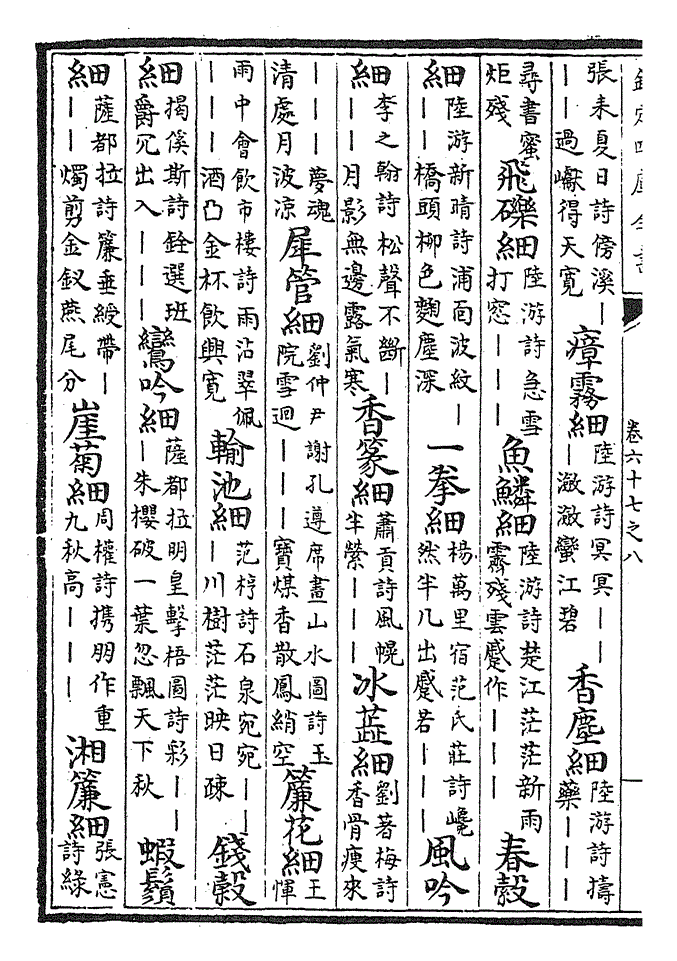 欽定四庫全書 卷六十七之八
張耒夏日詩傍溪丨丨丨過巘得天寛 瘴霧細 陸游詩冥冥丨丨丨潋潋蠻江碧 香塵細 陸游詩擣藥丨丨丨
尋書蜜炬殘 飛礫細 陸游詩急雪打窓丨丨丨 魚鱗細 陸游詩楚江茫茫新雨霽殘雲蹙作丨丨丨 春縠
細 陸游新晴詩浦面波紋丨丨丨橋頭柳色麴塵深 一拳細 楊萬里宿范氏莊詩巉然半几出蹙若丨丨丨 風吟
細 李之翰詩松聲不斷丨丨丨月影無邊露氣寒 香篆細 蕭貢詩風幌半縈丨丨丨 冰蕋細 劉著梅詩香骨瘦來
丨丨丨夢魂清處月波凉 犀管細 劉仲尹謝孔遵席畫山水圖詩玉院雪迴丨丨丨寶煤香散鳳綃空 簾花細 王惲
雨中會飲市樓詩雨沾翠佩丨丨丨酒凸金杯飲興寛 輸池細 范梈詩石泉宛宛丨丨丨川樹茫茫映日疎 錢縠
細 揭傒斯詩銓選班爵冗出入丨丨丨 鸞吟細 薩都拉明皇擊梧圖詩彩丨丨丨朱櫻破一葉忽飄天下秋 蝦鬚
細 薩都拉詩簾垂綬帶丨丨丨燭剪金釵燕尾分 崖菊細 周權詩携朋作重九秋高丨丨丨 湘簾細 張憲詩緑